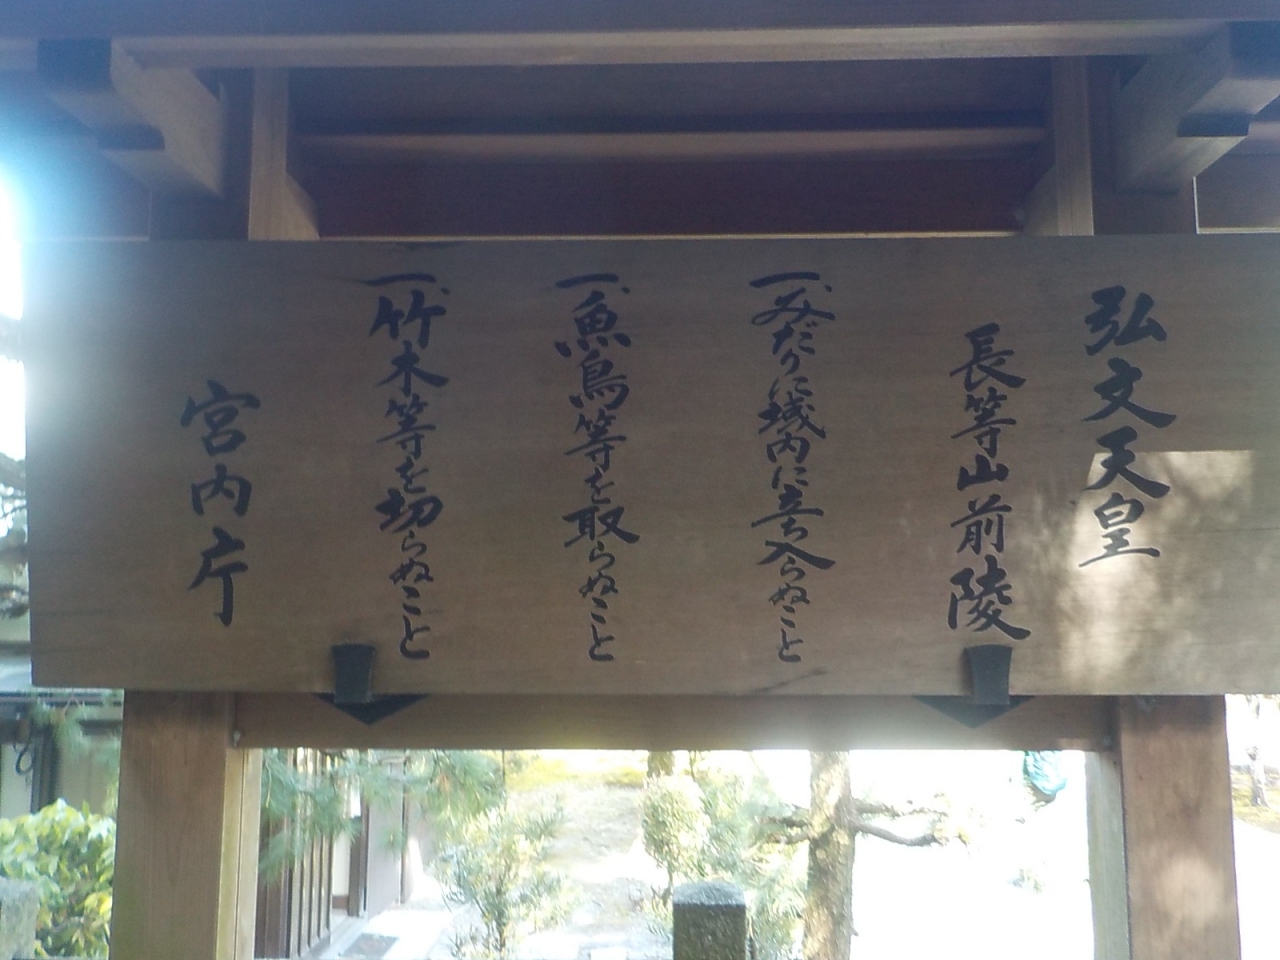 弘文天皇
長等山前陵
一、みだりに域内に立ち入らぬこと
一、魚鳥等を取らぬこと
一、竹木等を切らぬこと
宮内庁